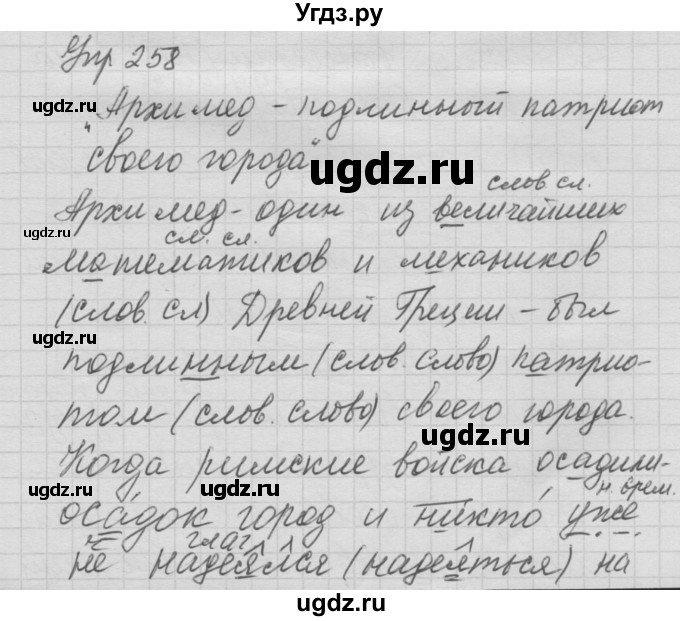 Угдз.ру
Упр 258
"Архимед - подлинный патриот
своего города"
слов. сл.
Архимед - один из величайших
сл. сл.
математиков и механиков
(слов. сл) Древней Греции - был
подлинным (слов. слово) патрио-
том (слов. слово) своего города.
Когда римские войска осадили-
н. врем.
осадок город и никто уже
н глаг
не надеялся (надеяться) на
ugdz.ru
ugdz.ru
ugdz.ru
ugdz.ru
ugdz.ru
ugdz.ru
ugdz.ru
ugdz.ru
ugdz.ru
ugdz.ru